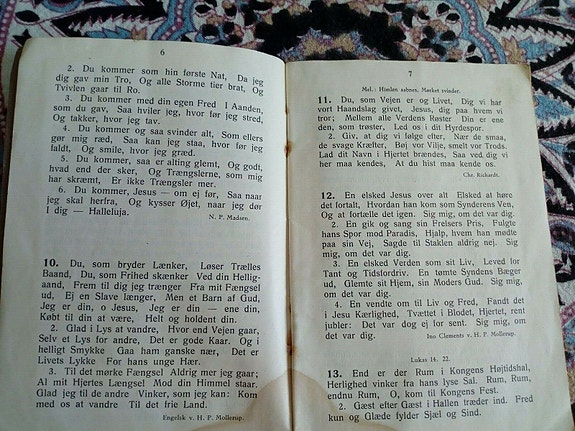 6
2. Du kommer som hin første Nat, Da jeg
dig gav min Tro, Og alle Storme tier brat, Og
Tvivlen gaar til Ro.
3. Du kommer med din egen Fred I Aanden,
som du gav, Saa hviler jeg, hvor før jeg stred,
Og takker, hvor jeg tav.
4. Du kommer og saa svinder alt, Som ellers
gør mig ræd, Saa kan jeg staa, hvor før jeg
faldt, Og smile, hvor jeg græd.
5. Du kommer, saa er alting glemt, Og godt,
hvad end der sker, Og Trængslerne, som mig
har skræmt, Er ikke Trængsler mer.
6. Du kommer, Jesus — om ej før, Saa naar
jeg skal herfra, Og kysser Øjet, naar jeg dør
I dig — Halleluja.
N. P. Madsen.
10. Du, som bryder Lænker, Løser Trælles
Baand, Du, som Frihed skænker Ved din Hellig-
aand, Frem til dig jeg trænger Fra mit Fængsel
ud, Ej en Slave længer, Men et Barn af Gud,
Jeg er din, o Jesus, Jeg er din — ene din,
Købt til din at være, Helt og holdent din.
2. Glad i Lys at vandre, Hvor end Vejen gaar,
Selv et Lys for andre, Det er gode Kaar. Og i
helligt Smykke Gaa ham ganske nær, Det er
Livets Lykke For hans unge Hær.
3. Til det mørke Fængsel Aldrig mer jeg gaar;
Al mit Hjertes Længsel Mod din Himmel staar.
Glad jeg til de andre Vinker, som jeg kan: Kom
med os at vandre Til det frie Land.
Engelsk v. H. P. Mollerup.
7
Mel.: Himlen aabnes, Mørket svinder.
11. Du, som Vejen er og Livet, Dig vi har
vort Haandslag givet, Jesus, dig paa hvem vi
tror; Mellem alle Verdens Røster Din er ene
den, som trøster, Led os i dit Hyrdespor.
2. Giv, at dig vi følge efter, Nær de smaa,
de svage Kræfter, Bøj vor Vilje, smelt vor Trods.
Lad dit Navn i Hjertet brændes, Saa ved dig vi
her maa kendes, At du hist maa kende os.
Chr. Richardt.
12. En elsked Jesus over alt Elsked at høre
det fortalt, Hvordan han kom som Synderens Ven,
Og at fortælle det igen. Sig mig, om det var dig.
2. En gik og sang sin Frelsers Pris, Fulgte
hans Spor mod Paradis, Hjalp, hvem han mødte
paa sin Vej, Sagde til Staklen aldrig nej. Sig
mig, om det var dig.
3. En elsked Verden som sit Liv, Leved for
Tant og Tidsfordriv. En tømte Syndens Bæger
ud, Glemte sit Hjem, sin Moders Gud. Sig mig,
om det var dig.
4. En vendte om til Liv og Fred, Fandt det
i Jesu Kærlighed, Tvættet i Blodet, Hjertet, rent
jubler: Det var dog ej for sent. Sig mig, om
det var dig.
Ino Clements v. H. P. Mollerup.
Lukas 14, 22.
13. End er der Rum i Kongens Højtidshal,
Herlighed vinker fra hans lyse Sal. Rum, Rum,
endnu Rum, O, kom til Kongens Fest.
2. Gæst efter Gæst i Hallen træder ind. Fred
kun og Glæde fylder Sjæl og Sind.